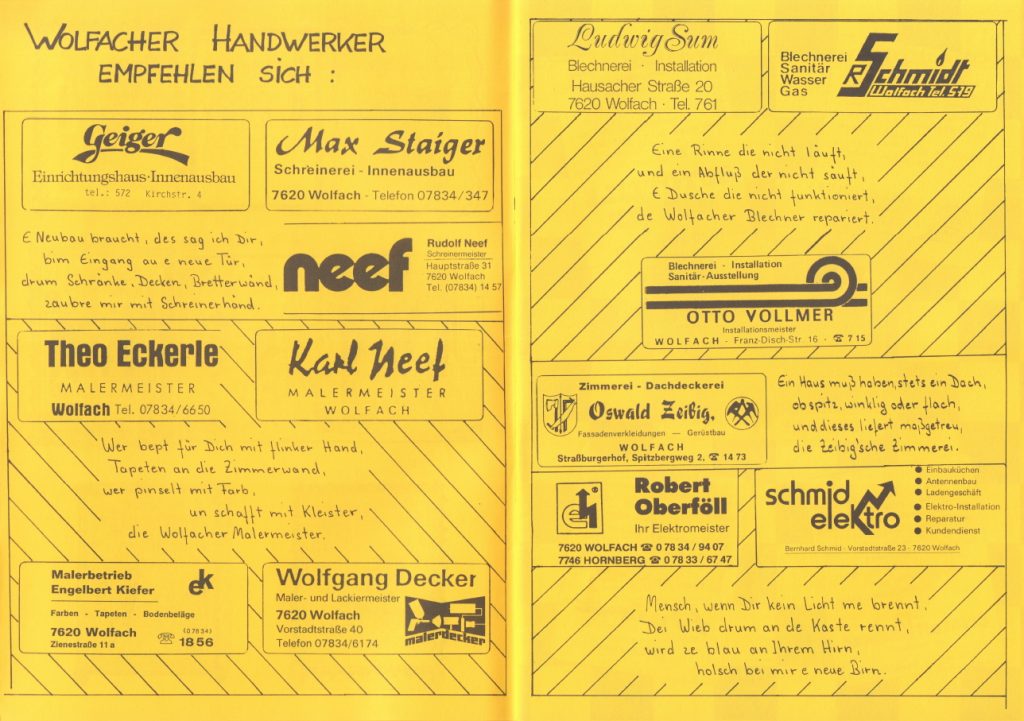 WOLFACHER HANDWERKER
EMPFEHLEN SICH :
Geiger
Einrichtungshaus·Innenausbau
tel.: 572 Kirchstr. 4
Max Staiger
Schreinerei - Innenausbau
7620 Wolfach · Telefon 07834/347
E Neubau braucht, des sag ich Dir,
bim Eingang au e neue Tür,
drum Schränke, Decken, Bretterwänd,
zaubre mir mit Schreinerhänd.
neef
Rudolf Neef
Schreinermeister
Hauptstraße 31
7620 Wolfach
Tel. (07834) 14 57
Theo Eckerle
MALERMEISTER
Wolfach Tel. 07834/6650
Karl Neef
MALERMEISTER
WOLFACH
Wer bept für Dich mit flinker Hand,
Tapeten an die Zimmerwand,
wer pinselt mit Farb,
un schafft mit Kleister,
die Wolfacher Malermeister.
Malerbetrieb
Engelbert Kiefer
ek
Farben - Tapeten - Bodenbeläge
7620 Wolfach
Zienestraße 11 a
(07834)
☎ 18 56
Wolfgang Decker
Maler- und Lackiermeister
7620 Wolfach
Vorstadtstraße 40
Telefon 07834/6174
malerdecker
Ludwig Sum
Blechnerei · Installation
Hausacher Straße 20
7620 Wolfach · Tel. 761
Blechnerei
Sanitär
Wasser
Gas
R Schmidt
Wolfach Tel. 579
Eine Rinne die nicht läuft,
und ein Abfluß der nicht säuft,
E Dusche die nicht funktioniert,
de Wolfacher Blechner repariert.
Blechnerei · Installation
Sanitär-Ausstellung
OTTO VOLLMER
Installationsmeister
WOLFACH - Franz-Disch-Str. 16 · ☎ 7 15
Zimmerei - Dachdeckerei
Oswald Zeibig,
Fassadenverkleidungen — Gerüstbau
WOLFACH
Straßburgerhof, Spitzbergweg 2, ☎ 14 73
Ein Haus muß haben, stets ein Dach,
ob spitz, winklig oder flach,
und dieses liefert maßgetreu,
die Zeibig'sche Zimmerei.
eh
Robert
Oberföll
Ihr Elektromeister
7620 WOLFACH ☎ 0 78 34 / 94 07
7746 HORNBERG ☎ 0 78 33 / 67 47
schmid
elektro
● Einbauküchen
● Antennenbau
● Ladengeschäft
● Elektro-Installation
● Reparatur
● Kundendienst
Bernhard Schmid · Vorstadtstraße 23 · 7620 Wolfach
Mensch, wenn Dir kein Licht me brennt,
Dei Wieb drum an de Kaste rennt,
wird ze blau an Ihrem Hirn,
holsch bei mir e neue Birn.